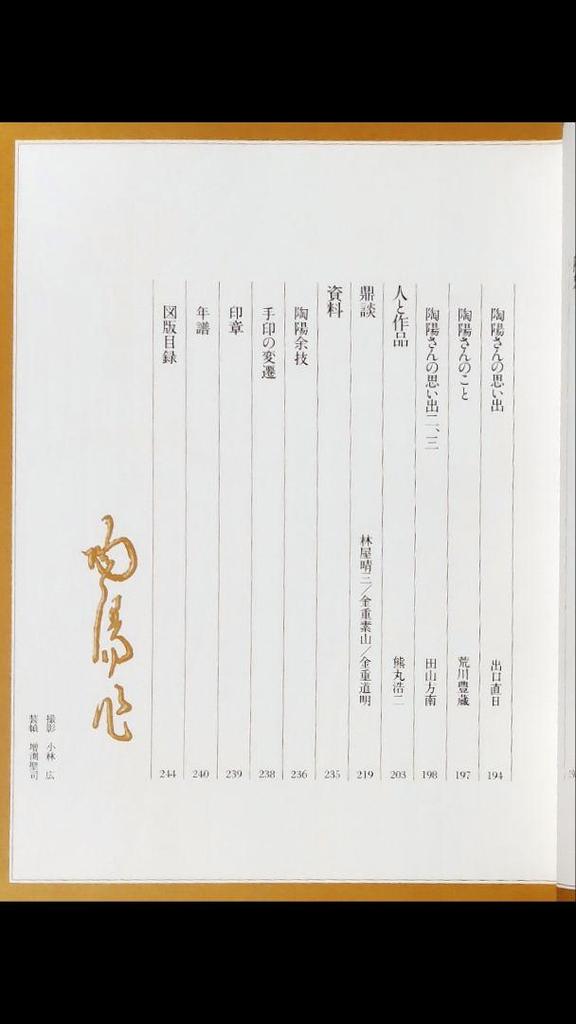 陶陽さんの思い出 出口直日 194
陶陽さんのこと 荒川豊蔵 197
陶陽さんの思い出二、三 田山方南 198
人と作品 熊丸浩二 203
鼎談 林屋晴三／金重素山／金重道明 219
資料 235
陶陽余技 236
手印の変遷 238
印章 239
年譜 240
図版目録 244
陶陽作
撮影 小林 広
装幀 増渕聖司